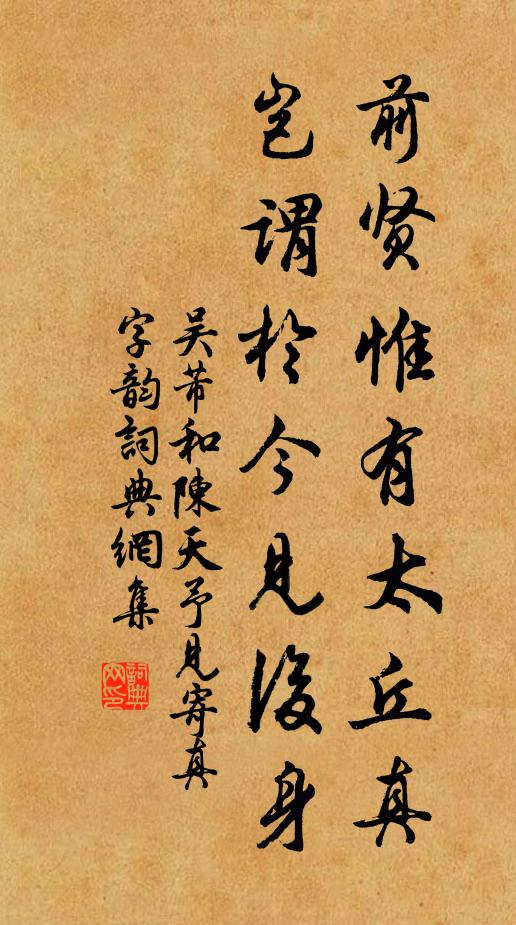 前贤惟有太丘真
岂谓於今见後身
吴芾和陳天予见寄真
字韵詞典網集
詞典网印